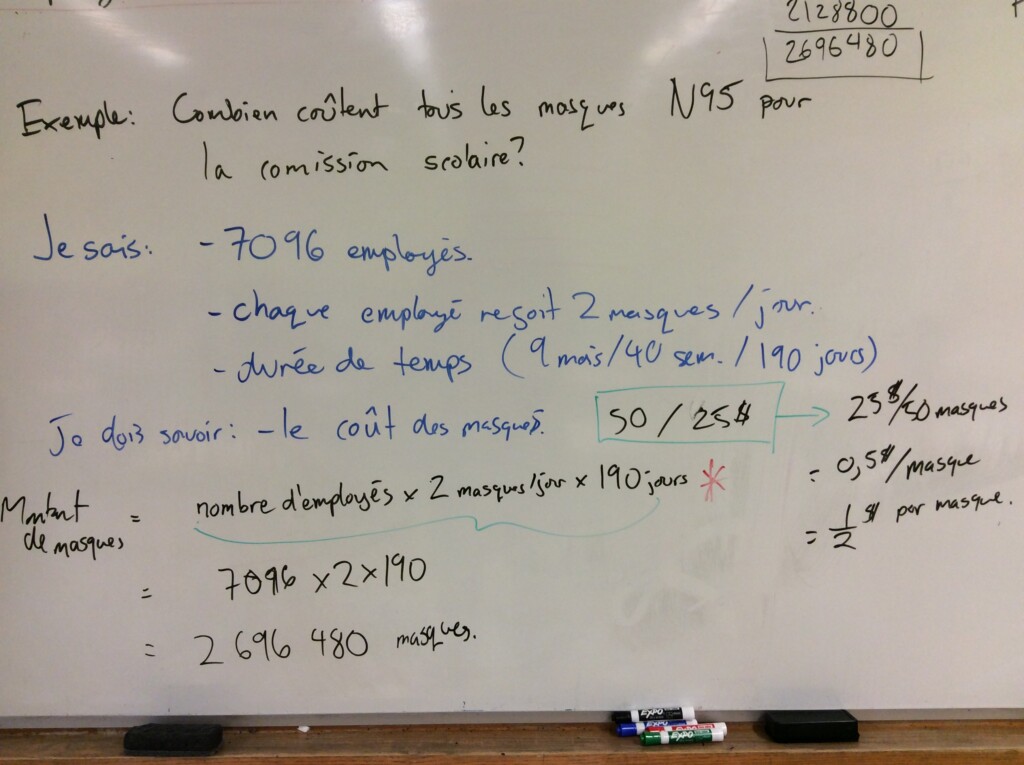 2128800
2696480
Exemple: Combien coûtent tous les masques N95 pour
la comission scolaire?
Je sais: - 7096 employés.
- chaque employé reçoit 2 masques / jour.
- durée de temps (9 mois/40 sem. / 190 jours)
Je dois savoir: - le coût des masques.
50 / 25$
25$/50 masques
= 0,5$/masque
= 1/2 $ par masque.
Montant de masques = nombre d'employés x 2 masques/jour x 190 jours *
= 7096 x 2 x 190
= 2 696 480 masques.
EXPO
EXPO
EXPO